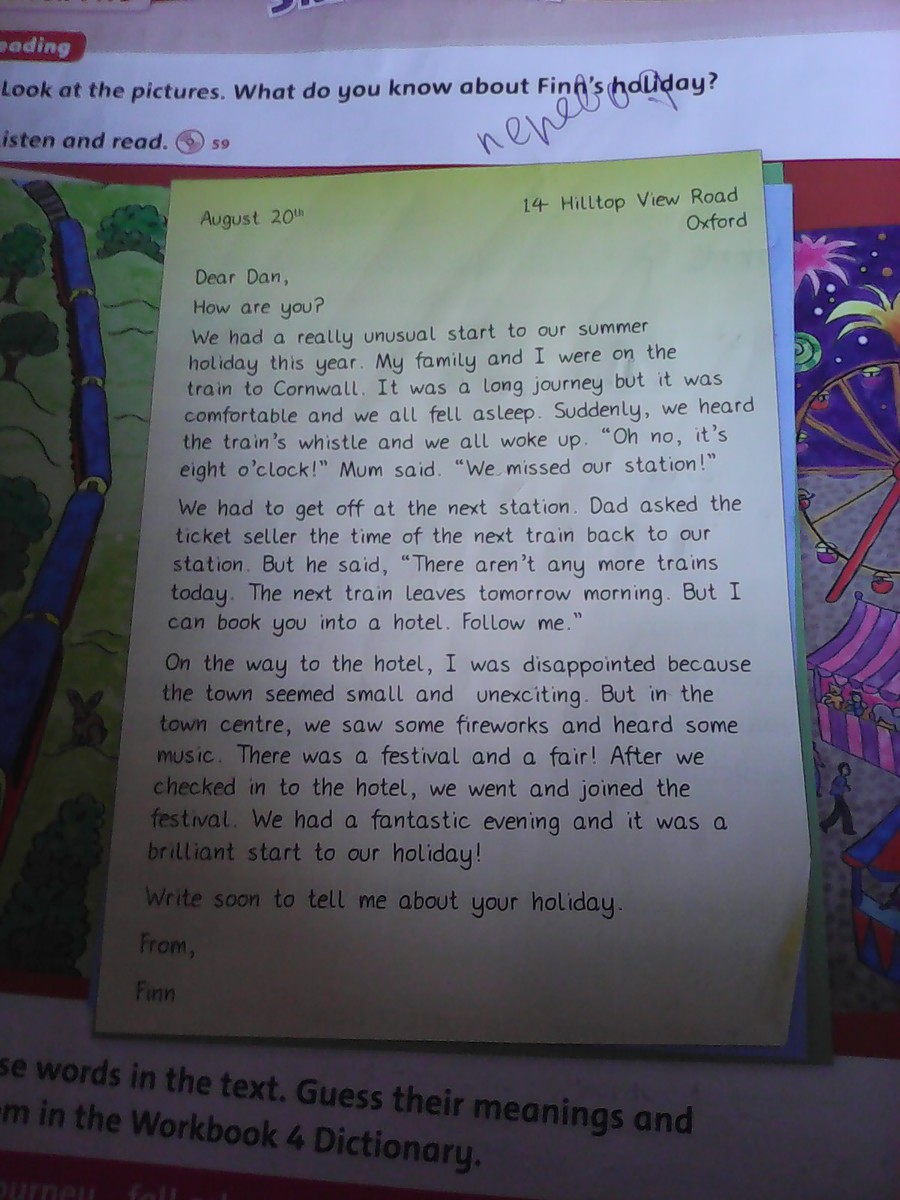 eading
Look at the pictures. What do you know about Finn's holiday?
isten and read. 59
August 20th
14 Hilltop View Road
Oxford
Dear Dan,
How are you?
We had a really unusual start to our summer
holiday this year. My family and I were on the
train to Cornwall. It was a long journey but it was
comfortable and we all fell asleep. Suddenly, we heard
the train's whistle and we all woke up. "Oh no, it's
eight o'clock!" Mum said. "We missed our station!"
We had to get off at the next station. Dad asked the
ticket seller the time of the next train back to our
station. But he said, "There aren't any more trains
today. The next train leaves tomorrow morning. But I
can book you into a hotel. Follow me."
On the way to the hotel, I was disappointed because
the town seemed small and unexciting. But in the
town centre, we saw some fireworks and heard some
music. There was a festival and a fair! After we
checked in to the hotel, we went and joined the
festival. We had a fantastic evening and it was a
brilliant start to our holiday!
Write soon to tell me about your holiday.
From,
Finn
se words in the text. Guess their meanings and
em in the Workbook 4 Dictionary.